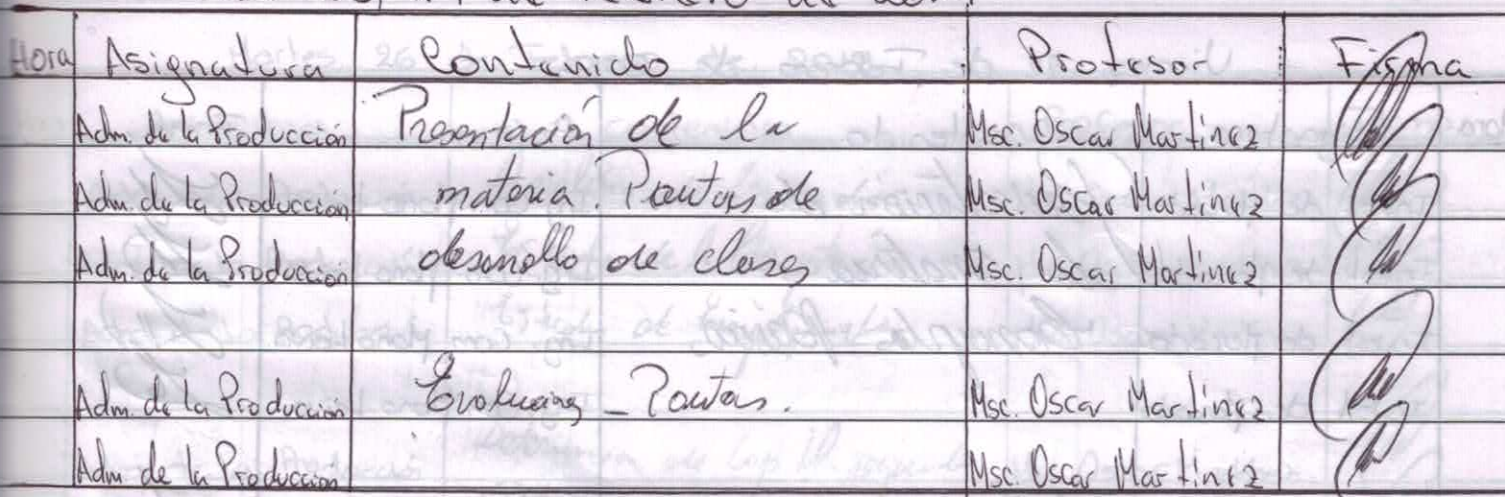 Hora Asignatura Contenido Profesor Firma
Adm. de la Producción Presentación de la Msc. Oscar Martinez
Adm. de la Producción materia. Pautas de Msc. Oscar Martinez
Adm. de la Producción desarrollo de clases Msc. Oscar Martinez
Adm. de la Producción Evaluación - Pautas. Msc. Oscar Martinez
Adm. de la Producción Msc. Oscar Martinez